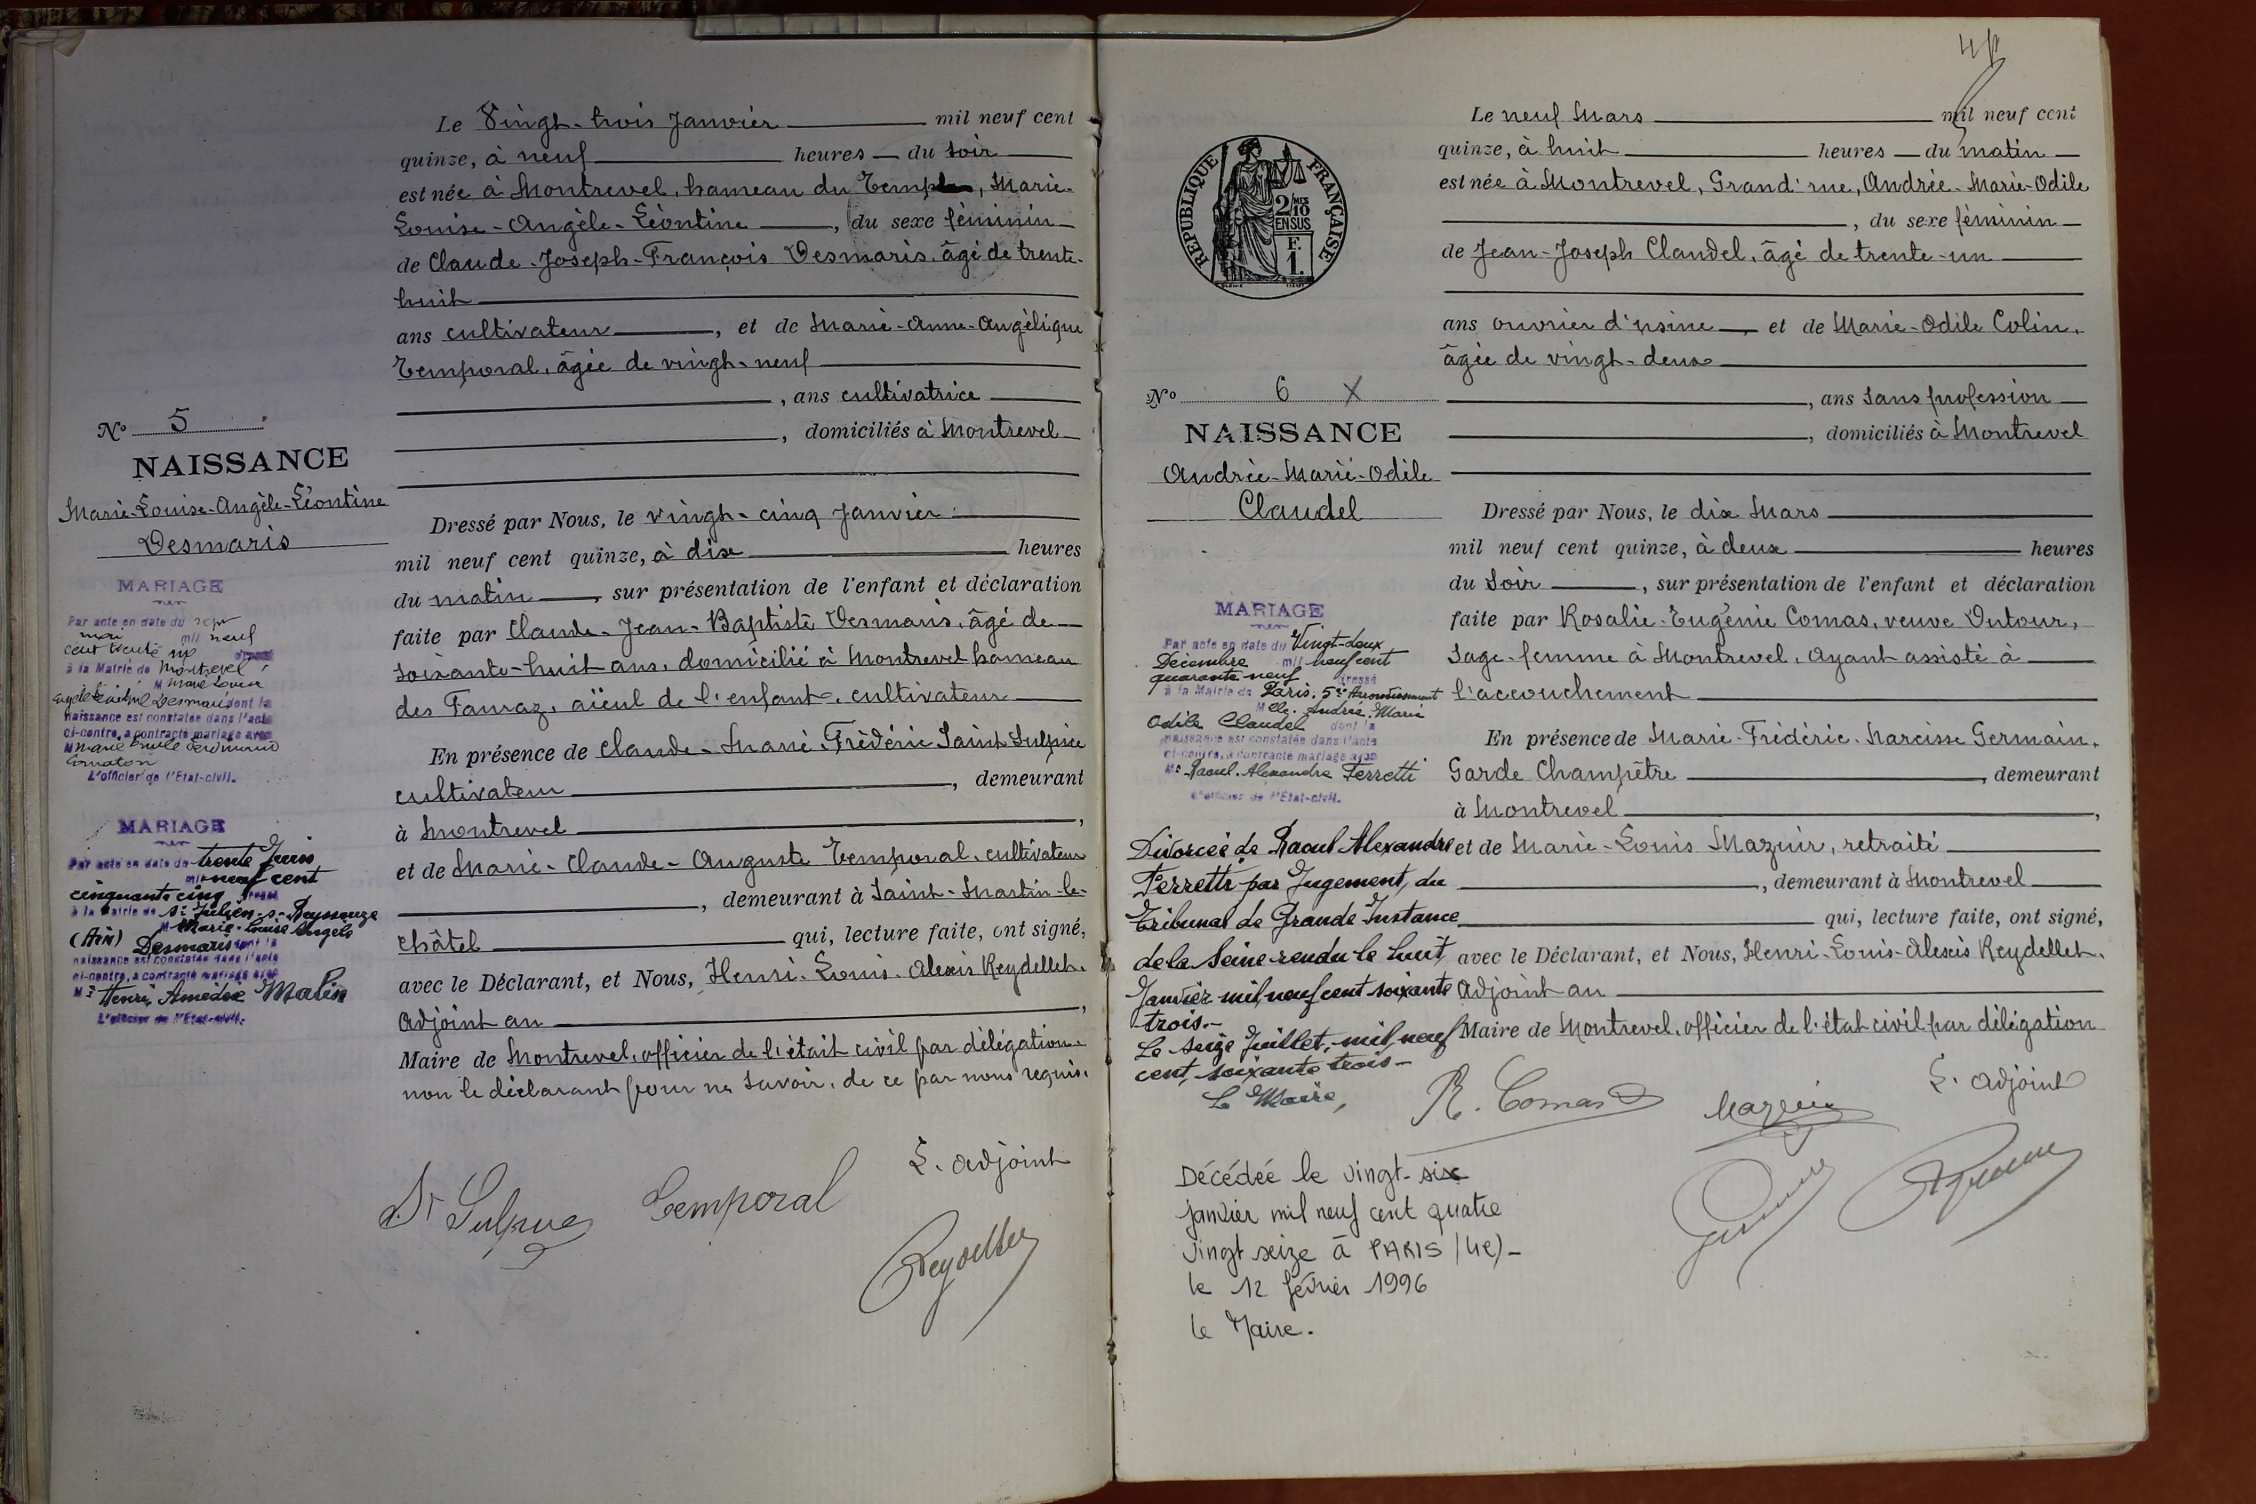 Le Vingt-trois Janvier mil neuf cent
quinze, à neuf heures du soir
est née à Montrevel, hameau du Temple, Marie-
Louise-Angèle-Léontine, du sexe féminin
de Claude-Joseph-François Desmaris, âgé de trente-
huit
ans cultivateur, et de Marie-Anne-Angélique
Temporal, âgée de vingt-neuf
, ans cultivatrice
, domiciliés à Montrevel
No 5
NAISSANCE
Marie-Louise-Angèle-Léontine
Desmaris
Dressé par Nous, le vingt-cinq Janvier
mil neuf cent quinze, à dix heures
du matin, sur présentation de l'enfant et déclaration
faite par Claude-Jean-Baptiste Desmaris, âgé de
soixante-huit ans, domicilié à Montrevel hameau
des Fauraz, aïeul de l'enfant, cultivateur
En présence de Claude-Marie-Frédéric Saint Sulpice
cultivateur, demeurant
à Montrevel,
et de Marie-Claude-Auguste Temporal, cultivateur
, demeurant à Saint-Martin-le-
Châtel qui, lecture faite, ont signé,
avec le Déclarant, et Nous, Henri-Louis-Alexis Reydellet,
adjoint au,
Maire de Montrevel, officier de l'était civil par délégation
non le déclarant pour ne savoir, de ce par nous requis.
L. adjoint
St Sulpice Temporal
Reydellet
MARIAGE
Par acte en date du sept
mai mil neuf
cent trente six dressé
à la Mairie de Montrevel
M Marie Louise
Angèle Léontine Desmaris dont la
naissance est constatée dans l'acte
ci-contre, a contracté mariage avec
M Marie Emile Ferdinand
L'officier de l'Etat-civil.
MARIAGE
Par acte en date du trente Juin
mil neuf cent
cinquante cinq dressé
à la Mairie de St Julien-s-Reyssouze
(Ain) M Marie-Louise Angèle
Desmaris dont la
naissance est constatée dans l'acte
ci-contre, a contracté mariage avec
Mr Henri Amédée Matin
L'officier de l'Etat-civil.
REPUBLIQUE FRANÇAISE
2/10 MES
EN SUS
F.
1.
Le neuf Mars mil neuf cent
quinze, à huit heures du matin
est née à Montrevel, Grand'rue, Andrée-Marie-Odile
, du sexe féminin
de Jean-Joseph Claudel, âgé de trente-un
ans ouvrier d'usine, et de Marie-Odile Colin,
âgée de vingt-deux
, ans sans profession
, domiciliés à Montrevel
No 6 X
NAISSANCE
Andrée-Marie-Odile
Claudel
Dressé par Nous, le dix Mars
mil neuf cent quinze, à deux heures
du soir, sur présentation de l'enfant et déclaration
faite par Rosalie-Eugénie Comas, veuve Dutour,
sage-femme à Montrevel, ayant assisté à
l'accouchement
En présence de Marie-Frédéric-Narcisse Germain,
Garde Champêtre, demeurant
à Montrevel,
et de Marie-Louis Mazuir, retraité
, demeurant à Montrevel
qui, lecture faite, ont signé,
avec le Déclarant, et Nous, Henri-Louis-Alexis Reydellet,
adjoint au
Maire de Montrevel, officier de l'état civil par délégation
L. adjoint
R. Comas Mazuir
MARIAGE
Par acte en date du Vingt-deux
Décembre mil neuf cent
quarante neuf dressé
à la Mairie de Paris, 5e Arrondissement
Melle Andrée Marie
Odile Claudel dont la
naissance est constatée dans l'acte
ci-contre, a contracté mariage avec
Mr Raoul Alexandre Ferretti
L'officier de l'Etat-civil.
Divorcée de Raoul Alexandre
Ferretti par Jugement du
Tribunal de Grande Instance
de la Seine rendu le huit
Janvier mil neuf cent soixante
trois.-
Le seize Juillet, mil neuf
cent, soixante trois -
Le Maire,
Décédée le vingt-six
janvier mil neuf cent quatre
vingt seize à PARIS (4e)-
le 12 février 1996
le Maire.